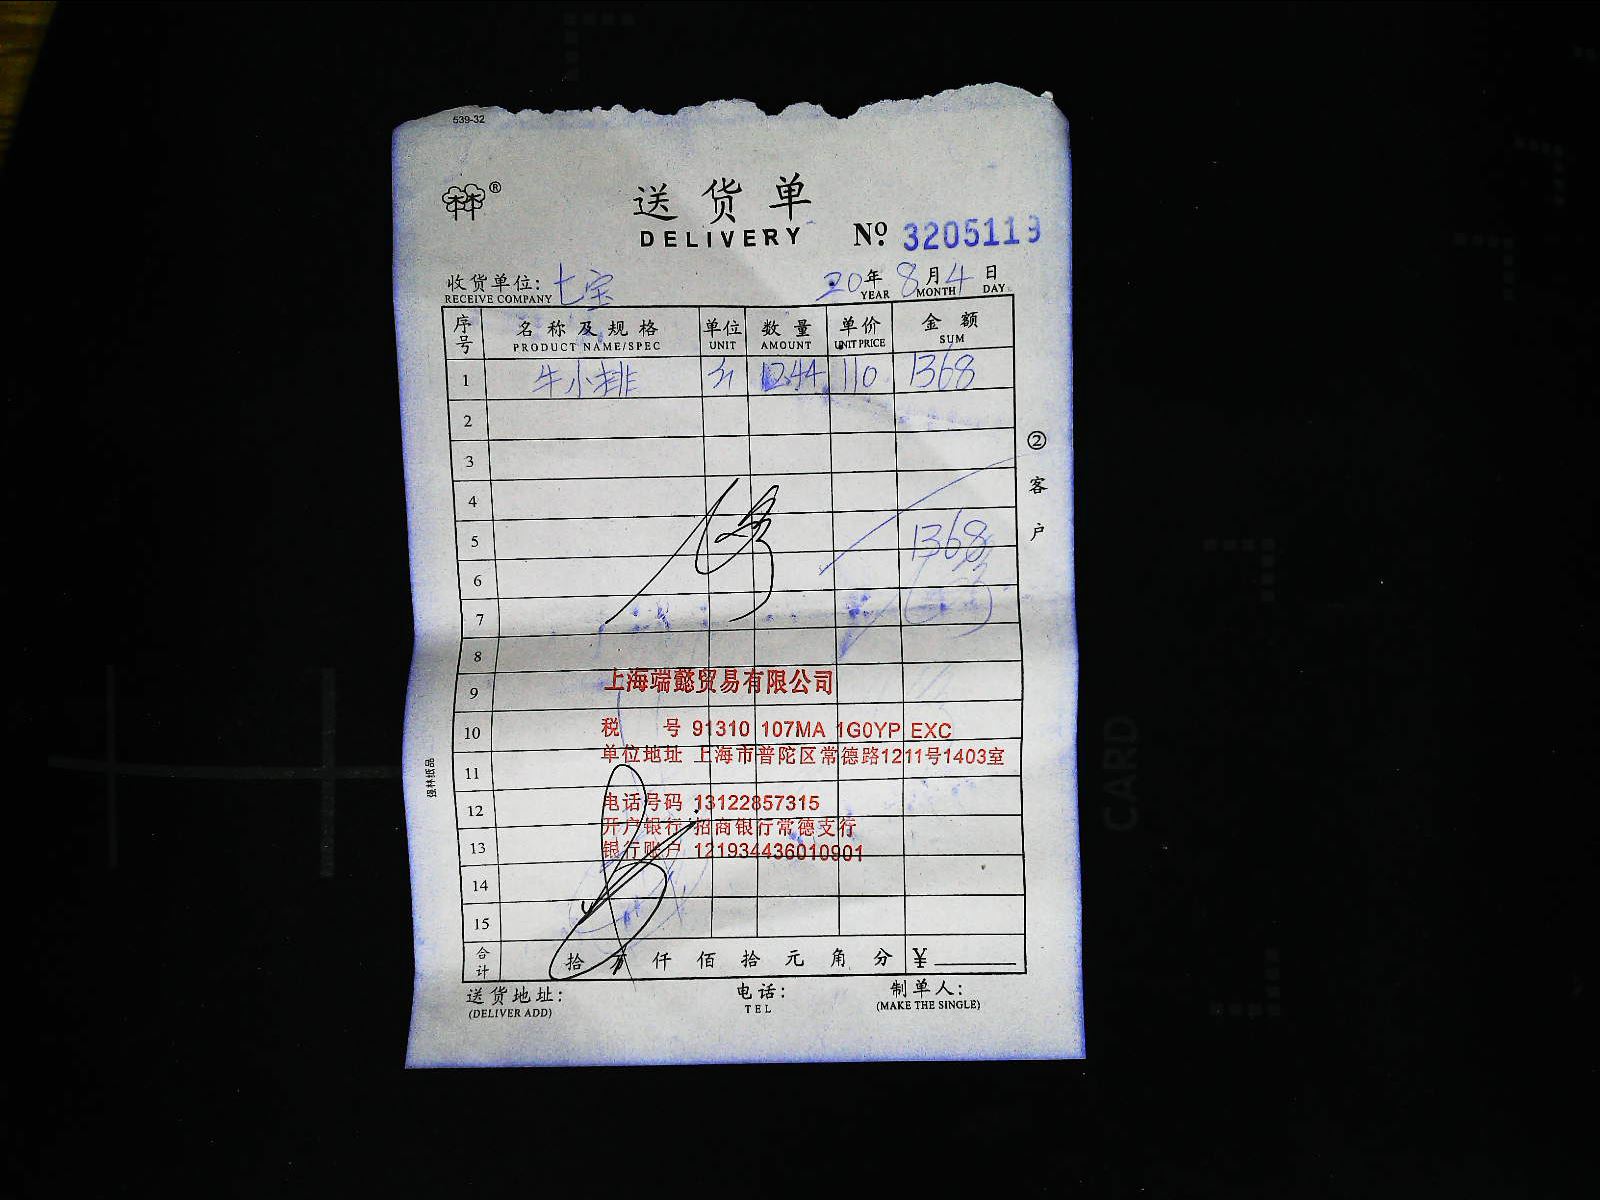 539-32
®
送货单
DELIVERY № 3205119
收货单位: 七宝 20年 8月 4日
RECEIVE COMPANY YEAR MONTH DAY
序号 名称及规格 单位 数量 单价 金额
PRODUCT NAME/SPEC UNIT AMOUNT UNIT PRICE SUM
1 牛小排 1244 110 1368
2
3
4
5 1368
6
7
8
9
10
11
12
13
14
15
②客户
上海端懿贸易有限公司
税 号 91310 107MA 1G0YP EXC
单位地址 上海市普陀区常德路1211号1403室
电话号码 13122857315
开户银行 招商银行常德支行
银行账户 121934436010901
强林纸品
合计 拾 万 仟 佰 拾 元 角 分 ¥
送货地址: 电话: 制单人:
(DELIVER ADD) TEL (MAKE THE SINGLE)
CARD